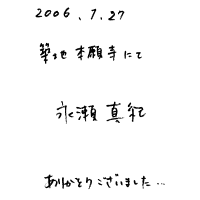 2006.7.27
築地本願寺にて
永瀬真紀
ありがとうございました…